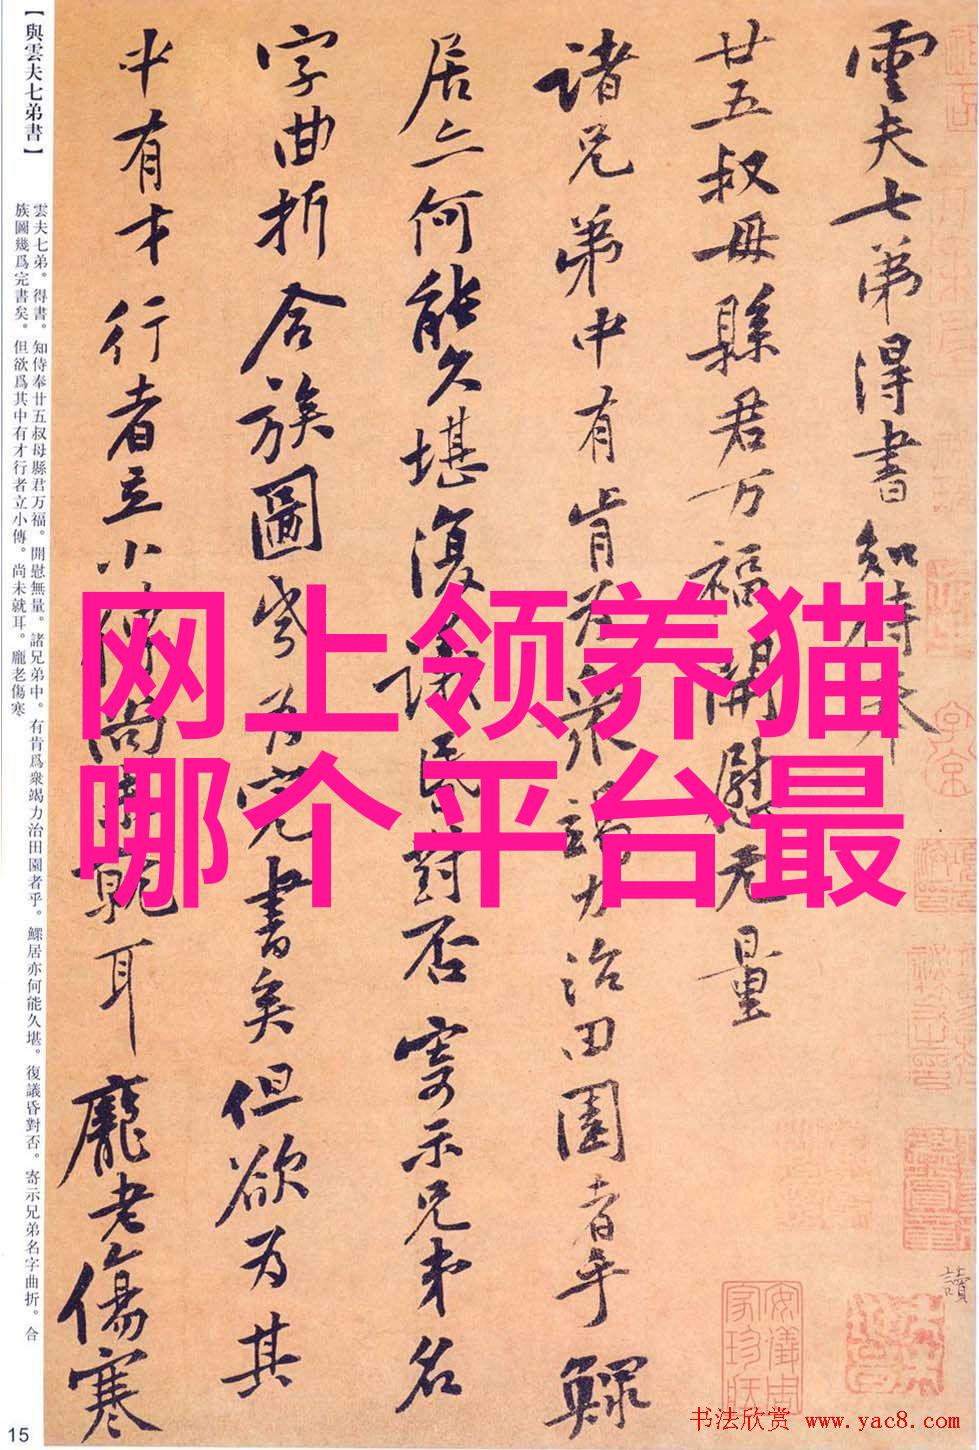 网上领养猫
哪个平台最
雲夫七弟得書知侍奉
廿五叔母縣君万福開慰无量
諸兄弟中有肯为衆竭力治田園者乎鰥
居亦何能久堪復議昏對否寄示兄弟名
字曲折合族圖幾为完書矣但欲为其
中有才行者立小傳尚未就耳龐老傷寒
讀
安儀周
家珍藏
【與雲夫七弟書】
雲夫七弟。得書。知侍奉廿五叔母縣君万福。開慰無量。諸兄弟中。有肯爲衆竭力治田園者乎。鰥居亦何能久堪。復議昏對否。寄示兄弟名字曲折。合
族圖幾爲完書矣。但欲爲其中有才行者立小傳。尚未就耳。龐老傷寒
15
书法欣赏 www.yac8.com